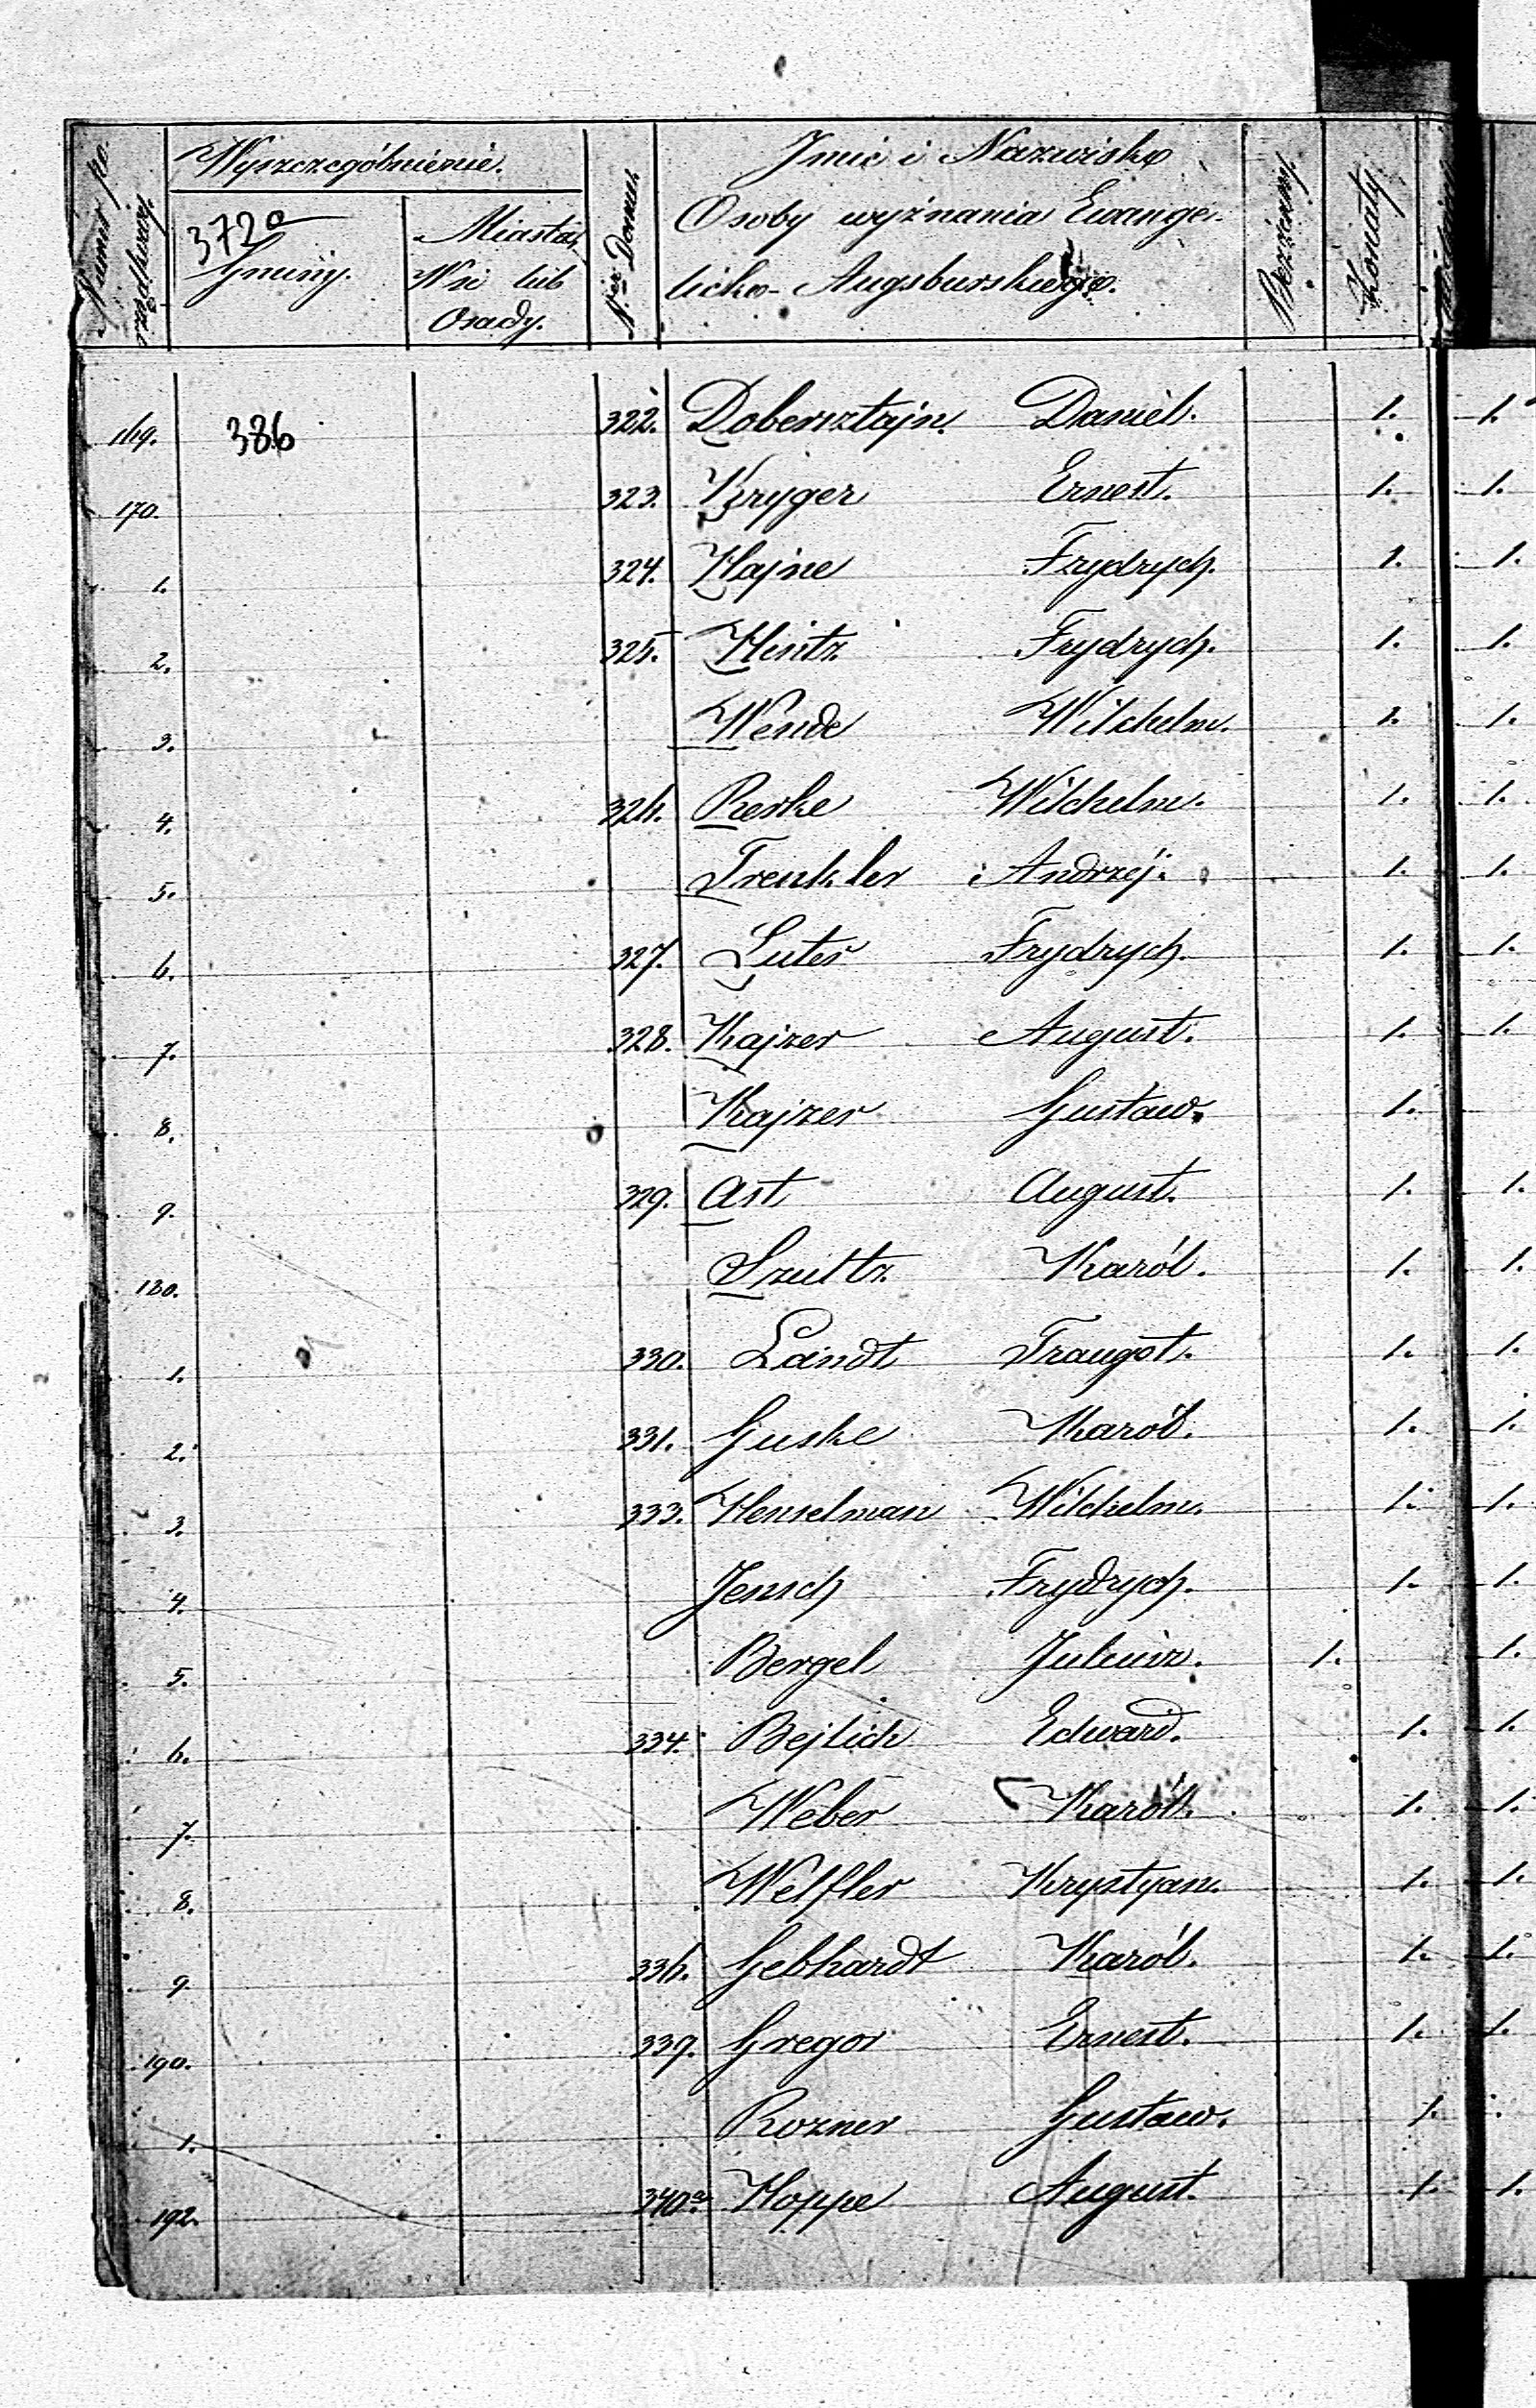 Numer po-
rządkowy.
Wyszczególnienie.
372a
Gminy.
Miasta,
Wsi lub
Osady.
Ner Domu.
Imie i Nazwisko
Osoby wyznania Ewange-
licko-Augsburskiego.
Bezżenny.
Żonaty
169. 386 322. Dobersztajn. Daniel. 1. 1.
170. 323. Kryger Ernest. 1. 1.
1. 324. Hajne Frydrych. 1. 1.
2. 325. Hintz Frydrych. 1. 1.
3. Wende Wilchelm. 1. 1.
4. 326. Reske Wilchelm. 1. 1.
5. Trenkler Andrzéj. 1. 1.
6. 327. Frydrych. 1. 1.
7. 328. Kajzer August. 1. 1.
8. Kajzer Gustaw. 1.
9. 329. Ast August. 1. 1.
180. Szultz. Karól. 1. 1.
1. 330. Landt Traugot. 1. 1.
2. 331. Guske Karól. 1. 1.
3. 333. Henselman Wilchelm. 1. 1.
4. Jensch Frydrych. 1. 1.
5. Bergel Juliusz. 1. 1.
6. 334. Bejlich Edward. 1. 1.
7. Weber Karól. 1. 1.
8. Welfler Krystyan. 1. 1.
9. 336. Gebhardt Karól. 1. 1.
190. 339. Gregor Ernest. 1. 1.
1. Rozner Gustaw. 1.
192. 340a Hoppe August. 1. 1.